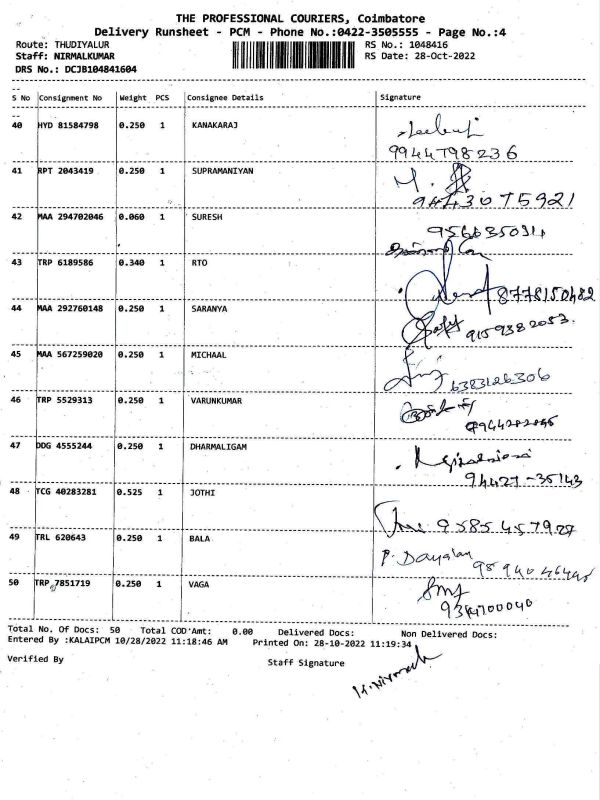 THE PROFESSIONAL COURIERS, Coimbatore
Delivery Runsheet - PCM - Phone No.:0422-3505555 - Page No.:4
Route: THUDIYALUR RS No.: 1048416
Staff: NIRMALKUMAR RS Date: 28-Oct-2022
DRS No.: DCJB104841604
S No Consignment No Weight PCS Consignee Details Signature
40 HYD 81584798 0.250 1 KANAKARAJ
9944798236
41 RPT 2043419 0.250 1 SUPRAMANIYAN
9443075921
42 MAA 294702046 0.060 1 SURESH
43 TRP 6189586 0.340 1 RTO
8778150482
44 MAA 292760148 0.250 1 SARANYA
9159382053.
45 MAA 567259020 0.250 1 MICHAAL
6383126306
46 TRP 5529313 0.250 1 VARUNKUMAR
47 DDG 4555244 0.250 1 DHARMALIGAM
94427-35143
48 TCG 40283281 0.525 1 JOTHI
9585457927
49 TRL 620643 0.250 1 BALA
P. Dayalan
50 TRP 7851719 0.250 1 VAGA
Total No. Of Docs: 50 Total COD'Amt: 0.00 Delivered Docs: Non Delivered Docs:
Entered By :KALAIPCM 10/28/2022 11:18:46 AM Printed On: 28-10-2022 11:19:34
Verified By Staff Signature